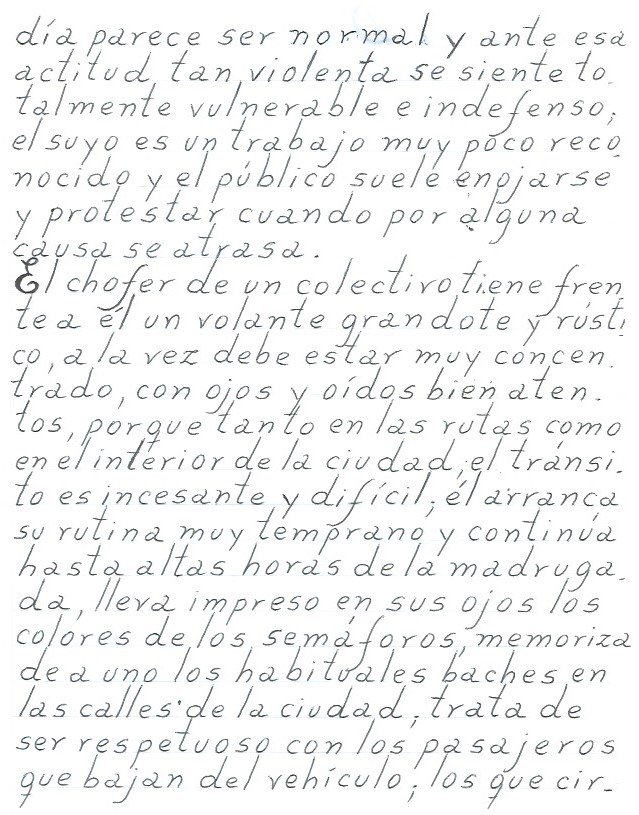 día parece ser normal y ante esa
actitud tan violenta se siente to.
talmente vulnerable e indefenso;
el suyo es un trabajo muy poco reco.
nocido y el público suele enojarse
y protestar cuando por alguna
causa se atrasa.
El chofer de un colectivo tiene fren.
te a él un volante grandote y rústi
co, a la vez debe estar muy concen.
trado, con ojos y oídos bien aten.
tos, porque tanto en las rutas como
en el interior de la ciudad, el tránsi.
to es incesante y difícil; él arranca
su rutina muy temprano y continúa
hasta altas horas de la madruga.
da, lleva impreso en sus ojos los
colores de los semáforos, memoriza
de a uno los habituales baches en
las calles de la ciudad; trata de
ser respetuoso con los pasajeros
que bajan del vehículo; los que cir-